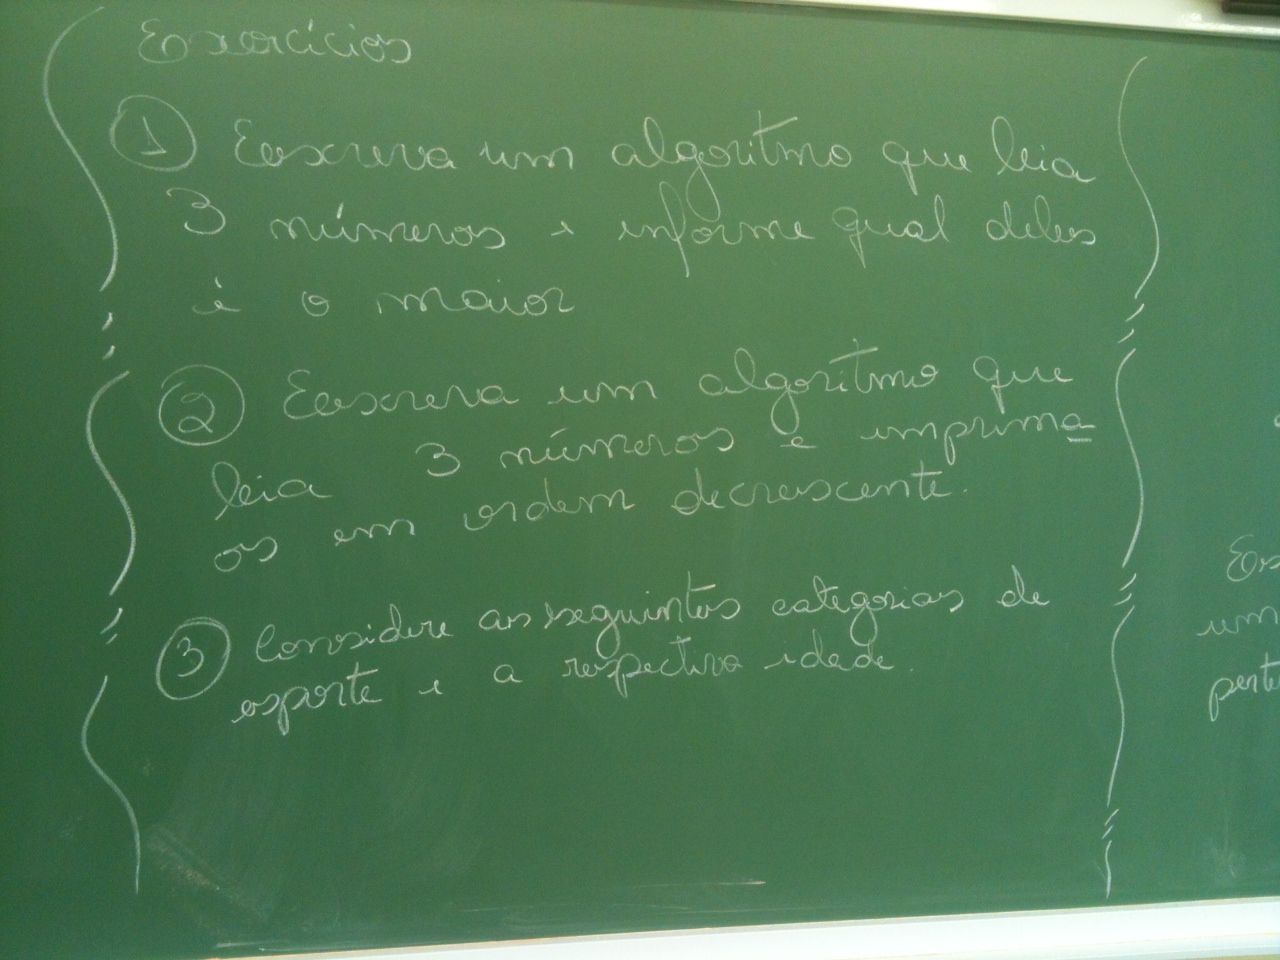 Exercícios
1 Escreva um algoritmo que leia
3 números e informe qual deles
é o maior
2 Escreva um algoritmo que
leia 3 números e imprima
os em ordem decrescente.
3 Considere as seguintes categorias de
esporte e a respectiva idade.
um